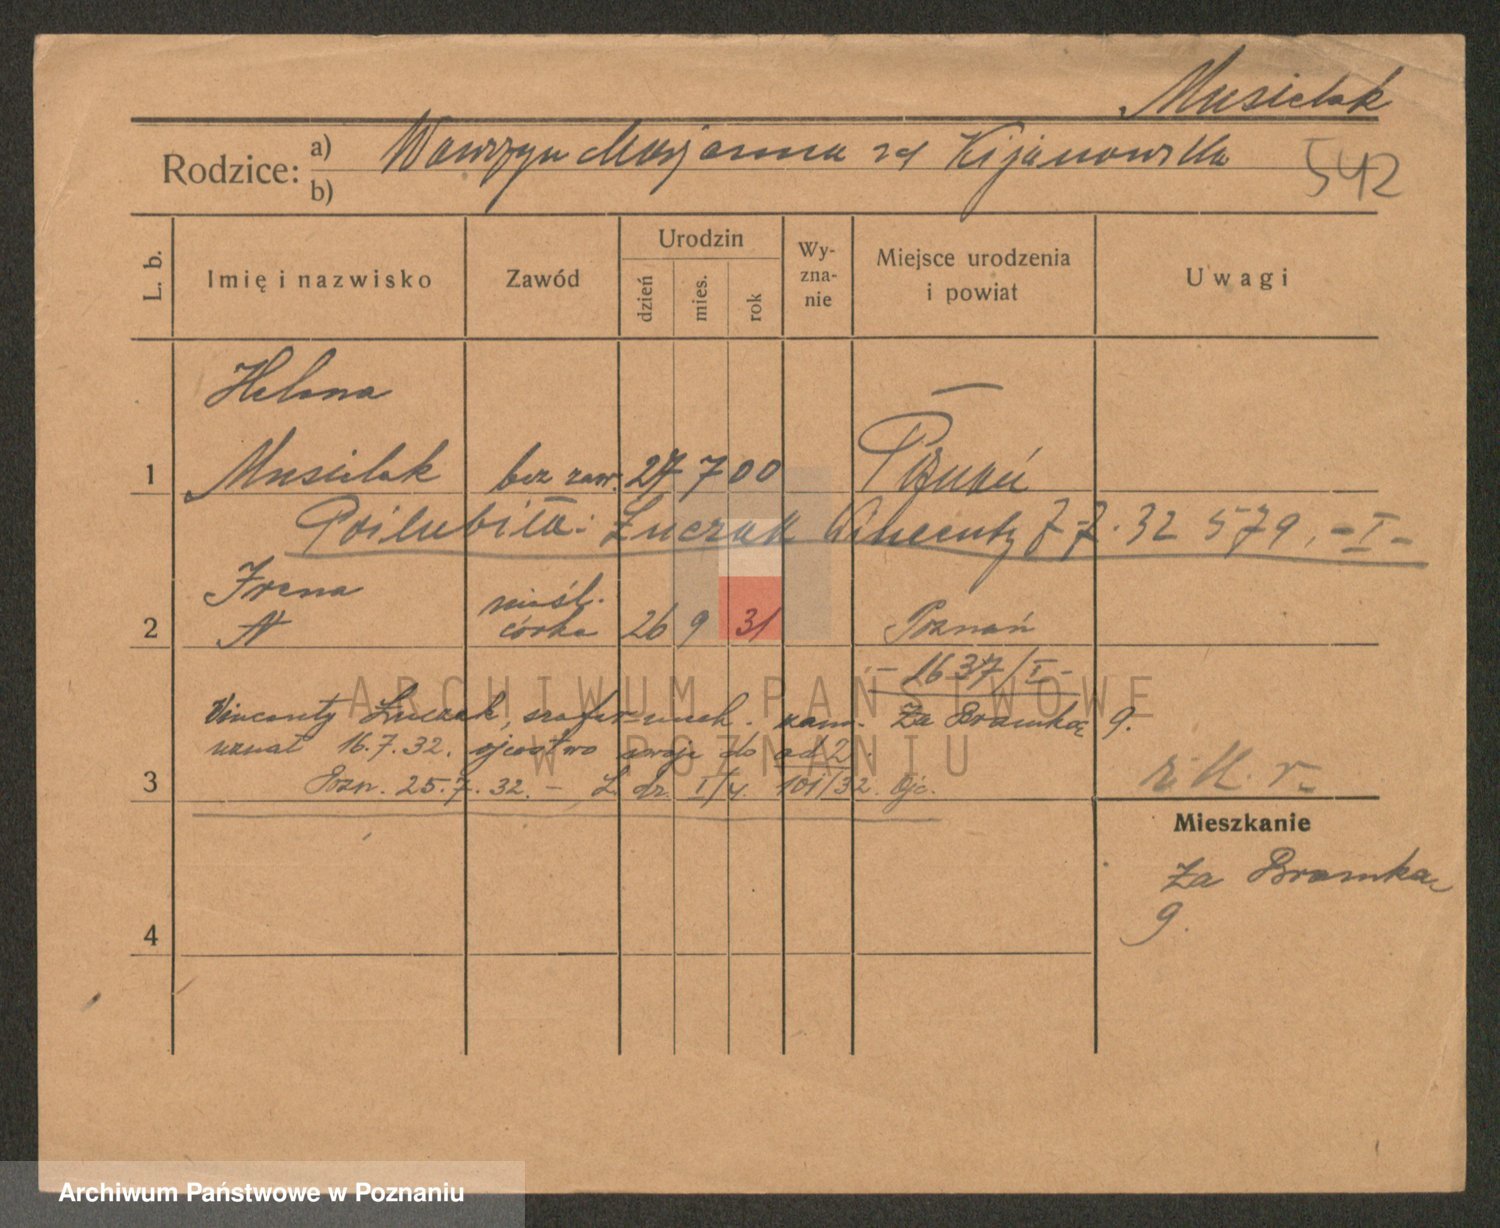 Musielak
Rodzice: a) Wawrzyn Marjanna zd Kijanowska
b)
542
L. b.
Imię i nazwisko
Zawód
Urodzin
dzień
mies.
rok
Wy-
zna-
nie
Miejsce urodzenia
i powiat
Uwagi
Helena
1 Musielak bez zaw. 27 7 00 Poznań
Poślubiła: Łuczak Wincenty 7.7.32 579. -I-
Irena nieśl.
2 N córka 26 9 31 Poznań
- 1637/I -
Wincenty Łuczak, szofer-mech. zam. Za Bramką 9.
uznał 16.7.32. ojcostwo swoje do ad 2.
3 Pozn. 25.7.32. - L. dz. I/4. 101/32. Ojc.
r. k. r.
Mieszkanie
Za Bramką
9.
4
ARCHIWUM PAŃSTWOWE
W POZNANIU
Archiwum Państwowe w Poznaniu